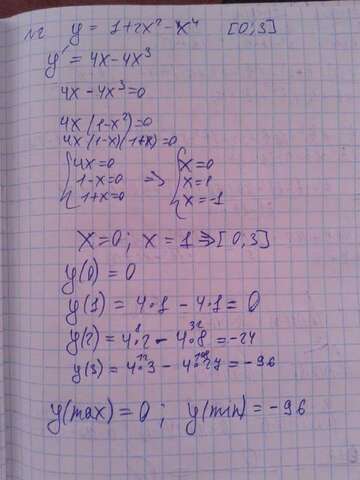 №2 y = 1+2x² - x⁴ [0;3]
y' = 4x-4x³
4x - 4x³=0
4x(1-x²)=0
4x(1-x)(1+x)=0
{4x=0 ⇒ {x=0
1-x=0 x=1
1+x=0 x=-1
x=0; x=1 ⇒ [0,3]
y(0) = 0
y(1) = 4·1 - 4·1 = 0
y(2) = 4·2 - 4·8 = -24
y(3) = 4·3 - 4·27 = -96
y(max) = 0; y(min) = -96